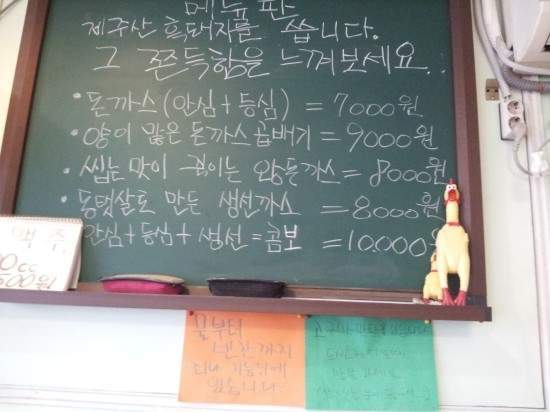 메뉴판
제주산 흑돼지를 씁니다.
그 쫀득함을 느껴보세요..
• 돈까스 (안심 + 등심) = 7000원
• 양이 많은 돈까스 곱배기 = 9000원
• 씹는 맛이 죽이는 왕돈까스 = 8000원
• 동명살로 만든 생선까스 = 8000원
안심 + 등심 + 생선 = 콤보 = 10.000원
맥주
00cc
500원
물부터
반찬까지
있습니다